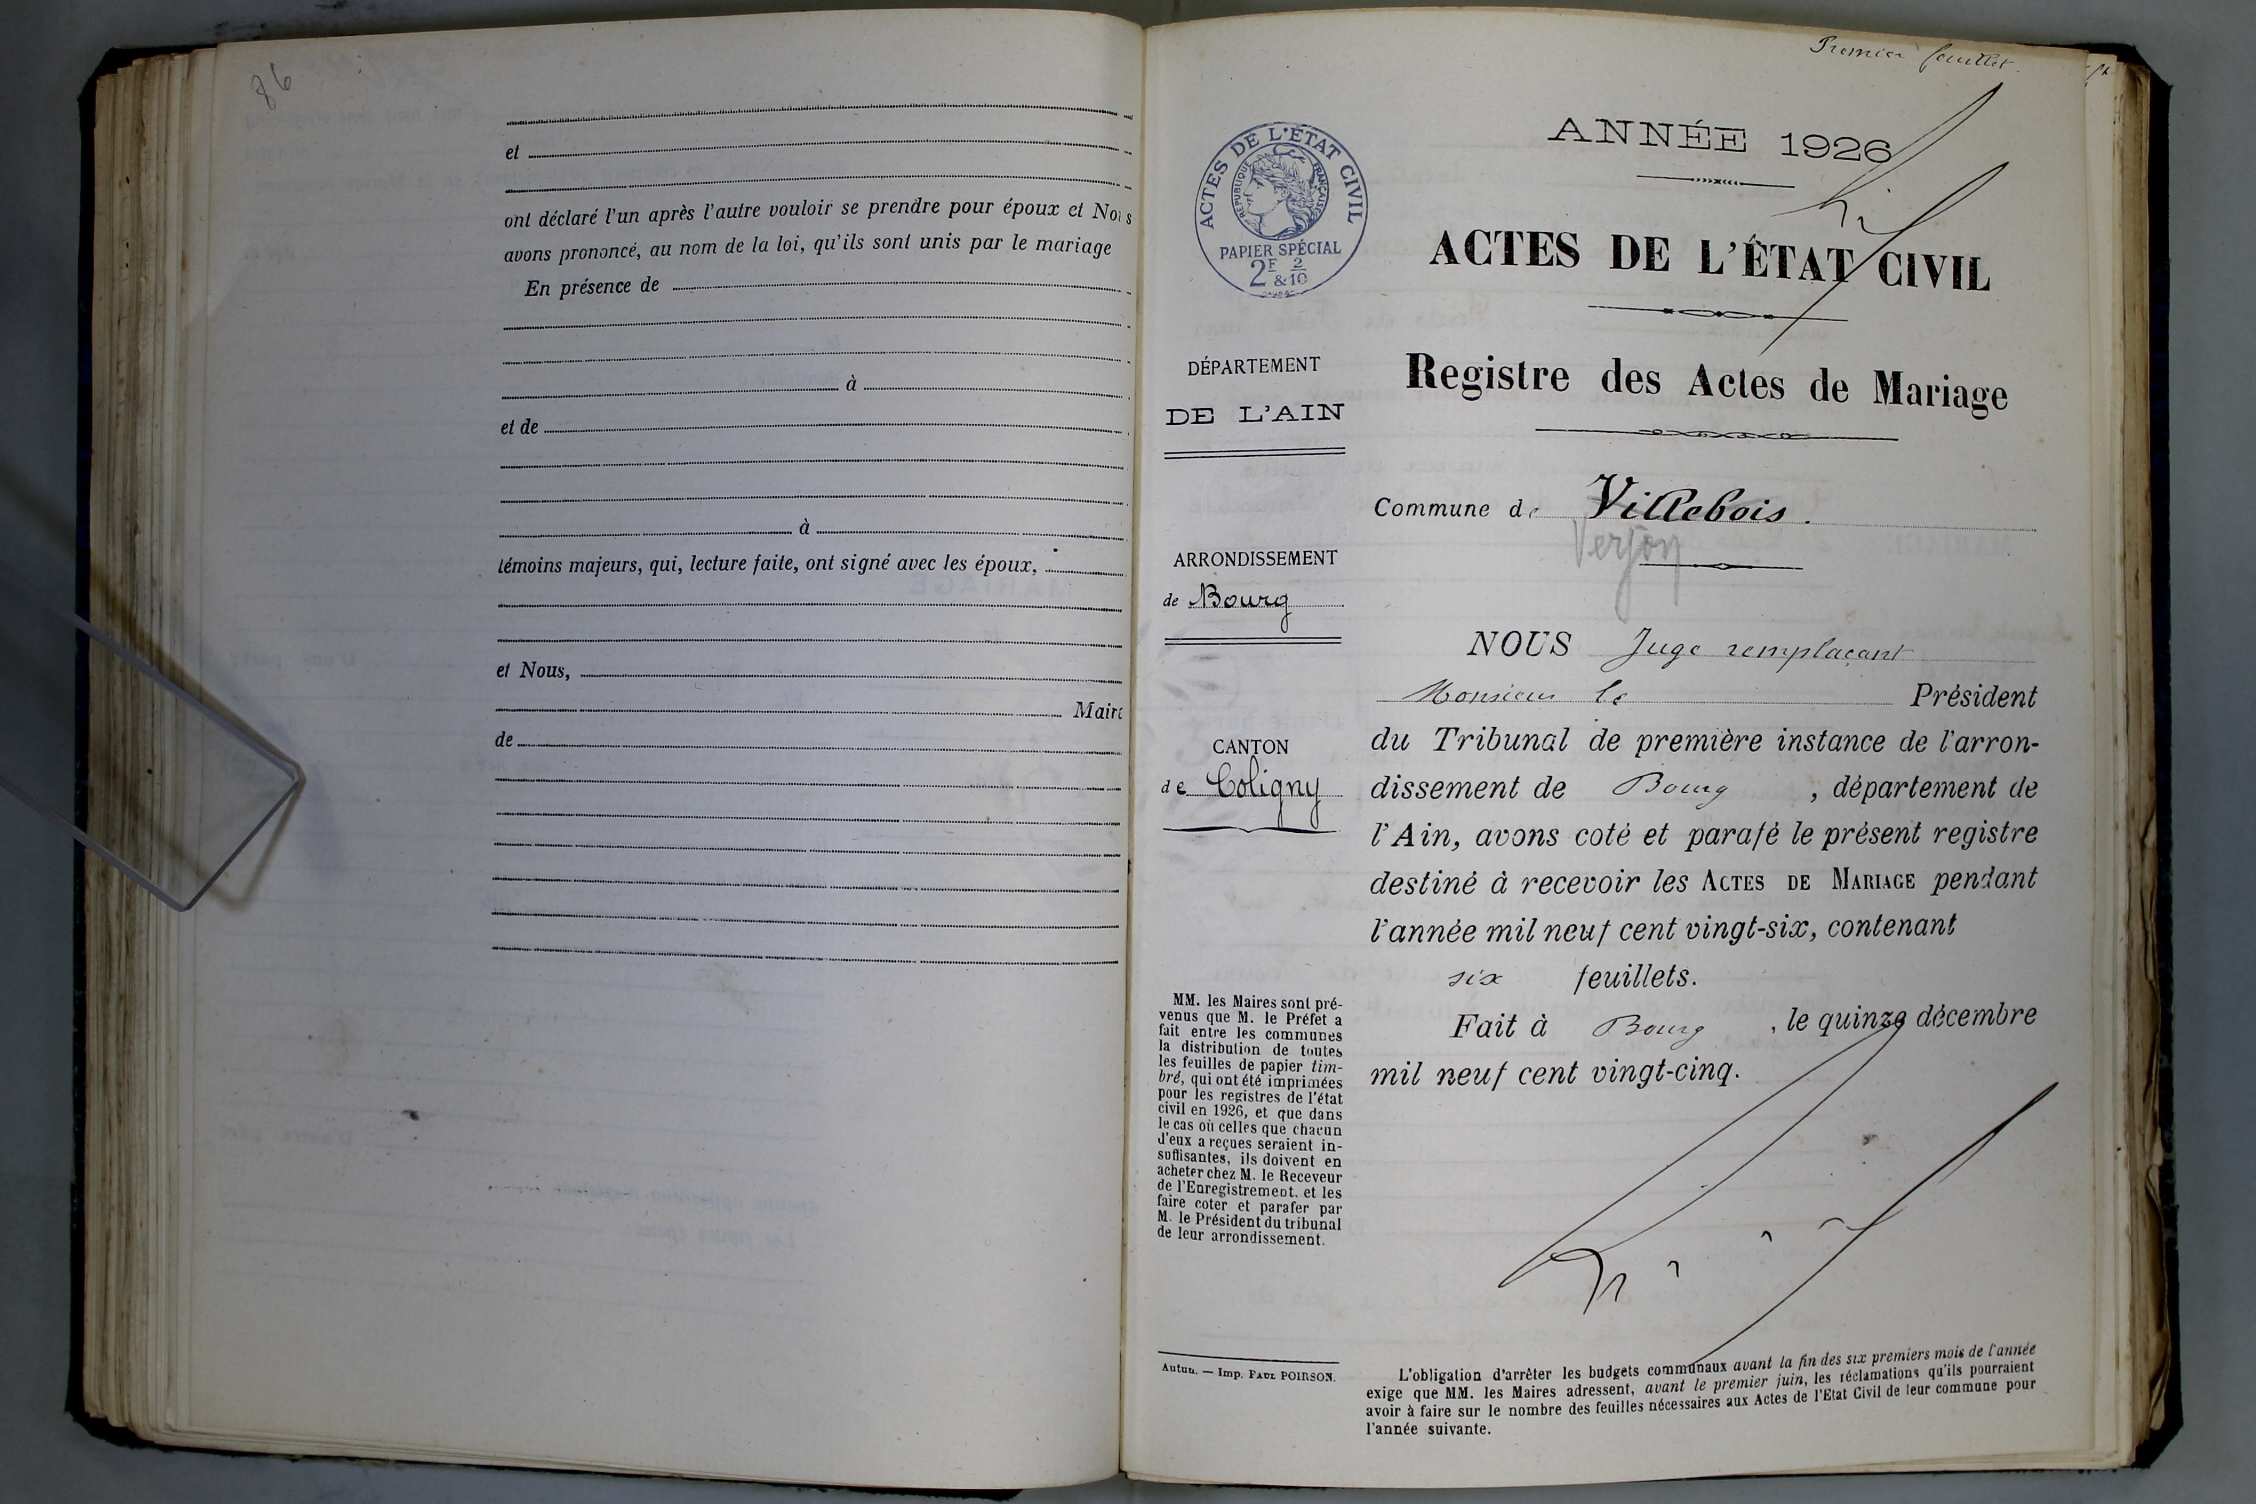 86
et
ont déclaré l'un après l'autre vouloir se prendre pour époux et Nous
avons prononcé, au nom de la loi, qu'ils sont unis par le mariage
En présence de
à
et de
à
témoins majeurs, qui, lecture faite, ont signé avec les époux,
et Nous,
Maire
de
Premier feuillet.
ACTES DE L'ÉTAT CIVIL
RÉPUBLIQUE FRANÇAISE
PAPIER SPÉCIAL
2F & 2/10
ANNÉE 1926
ACTES DE L'ÉTAT CIVIL
Registre des Actes de Mariage
DÉPARTEMENT
DE L'AIN
ARRONDISSEMENT
de Bourg
CANTON
de Coligny
MM. les Maires sont pré-
venus que M. le Préfet a
fait entre les communes
la distribution de toutes
les feuilles de papier tim-
bré, qui ont été imprimées
pour les registres de l'état
civil en 1926, et que dans
le cas où celles que chacun
d'eux a reçues seraient in-
suffisantes, ils doivent en
acheter chez M. le Receveur
de l'Enregistrement. et les
faire coter et parafer par
M. le Président du tribunal
de leur arrondissement.
Autun. — Imp. PAUL POIRSON.
Commune de Villebois.
Verjon
NOUS Juge remplaçant
Monsieur le Président
du Tribunal de première instance de l'arron-
dissement de Bourg, département de
l'Ain, avons coté et parafé le présent registre
destiné à recevoir les ACTES DE MARIAGE pendant
l'année mil neuf cent vingt-six, contenant
six feuillets.
Fait à Bourg, le quinze décembre
mil neuf cent vingt-cinq.
L'obligation d'arrêter les budgets communaux avant la fin des six premiers mois de l'année
exige que MM. les Maires adressent, avant le premier juin, les réclamations qu'ils pourraient
avoir à faire sur le nombre des feuilles nécessaires aux Actes de l'Etat Civil de leur commune pour
l'année suivante.